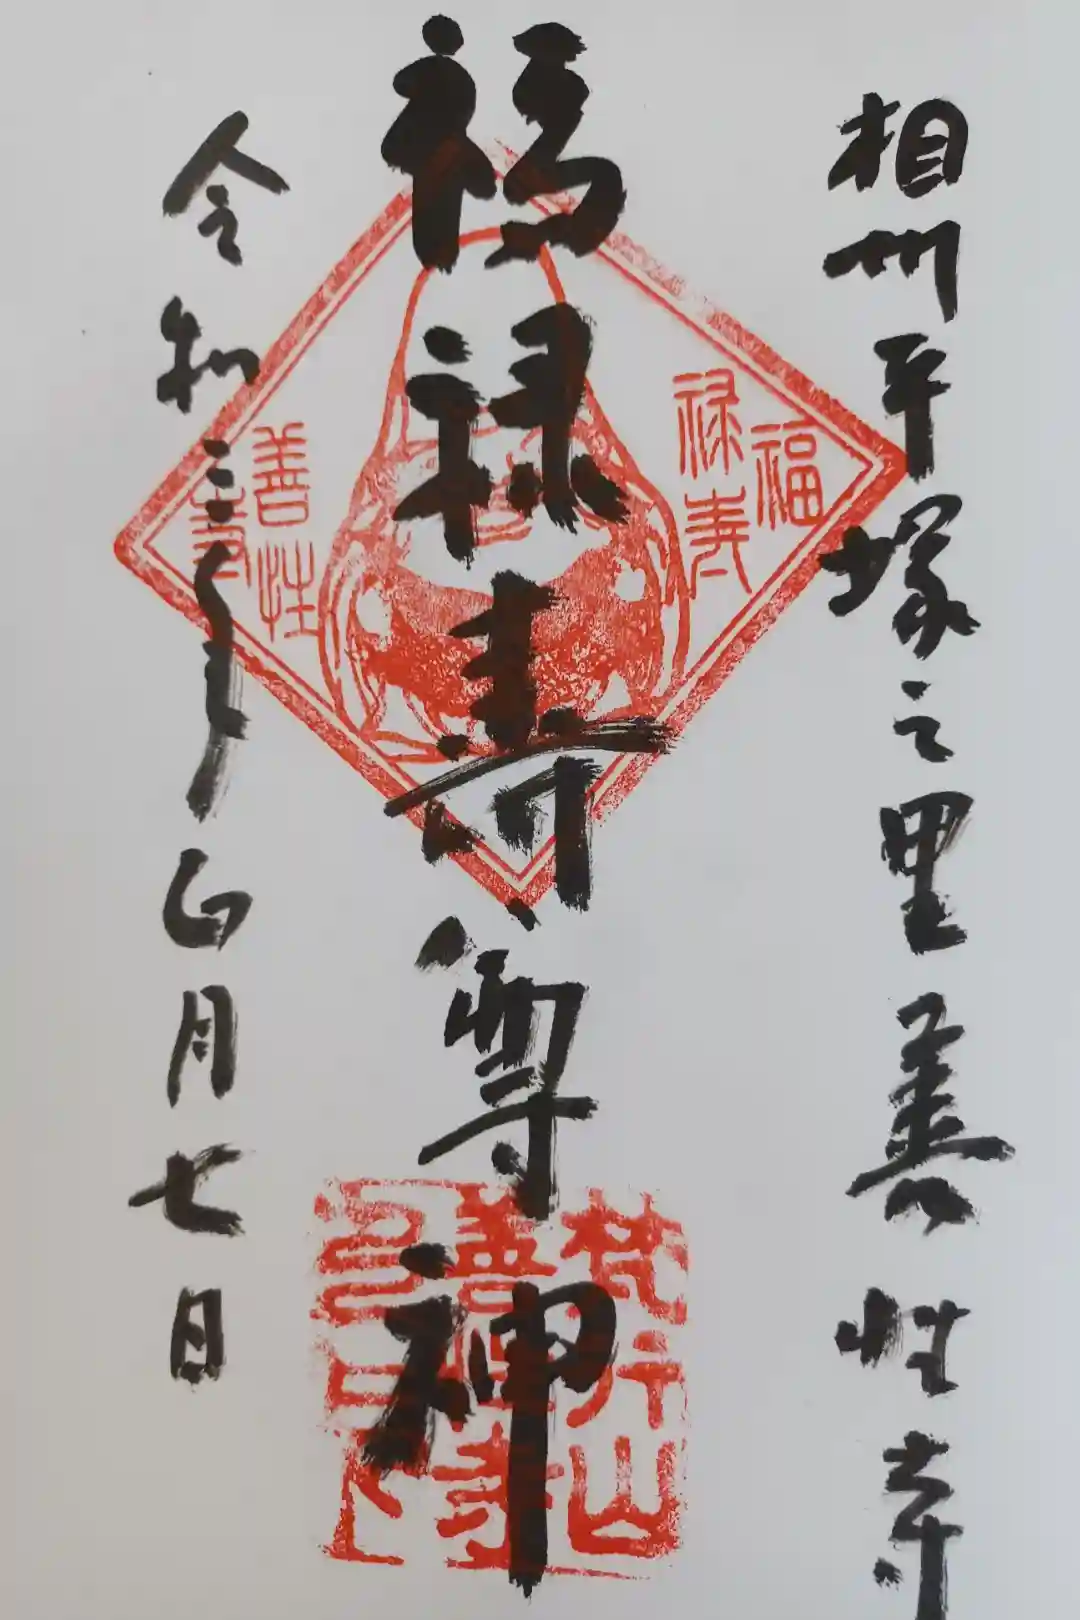 相州平塚之里善性寺
福禄寿尊神
令和三年正月七日
福
禄寿
善性
寺
梵行山
善性寺